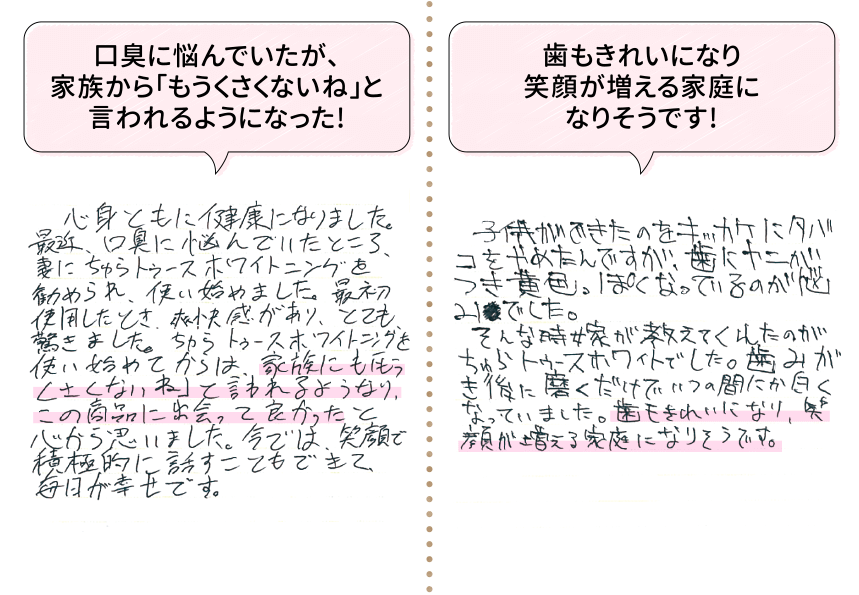 口臭に悩んでいたが、
家族から「もうくさくないね」と
言われるようになった!
心身ともに健康になりました。
最近、口臭に悩んでいたところ、
妻にちゅらトゥースホワイトニングを
勧められ、使い始めました。最初
使用したとき、爽快感があり、とても
驚きました。ちゅらトゥースホワイトニングを
使い始めてからは、家族にももう
くさくないね」と言われるようなり、
この商品に出会って良かったと
心から思いました。今では、笑顔で
積極的に話すこともできて、
毎日が幸せです。
歯もきれいになり
笑顔が増える家庭に
なりそうです!
子供ができたのをキッカケにタバ
コをやめたんですが、歯にヤニが
つき黄色っぽくなっているのが悩
みでした。
そんな時嫁が教えてくれたのが
ちゅらトゥースホワイトでした。歯みが
き後に磨くだけでいつの間にか白く
なっていました。歯もきれいになり、笑
顔が増える家庭になりそうです。